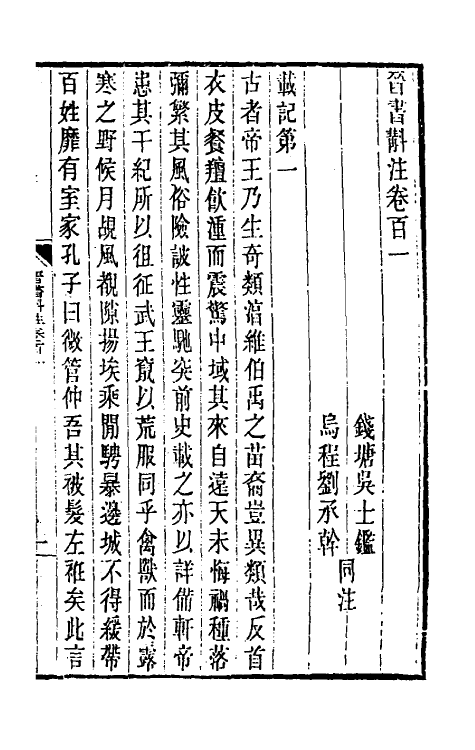 晉書斠注卷百一
錢塘吳士鑑
烏程劉承幹
同注
載記第一
古者帝王乃生奇類淳維伯禹之苗裔豈異類哉反首
衣皮餐羶飲湩而震驚中域其來自遠天未悔禍種落
彌繁其風俗險詖性靈馳突前史載之亦以詳備軒帝
患其干紀所以徂征武王竄以荒服同乎禽獸而於露
寒之野候月覘風覩隙揚埃乘閒騁暴邊城不得緩帶
百姓靡有室家孔子曰微管仲吾其被髮左袵矣此言
晉書斠注卷百一
一